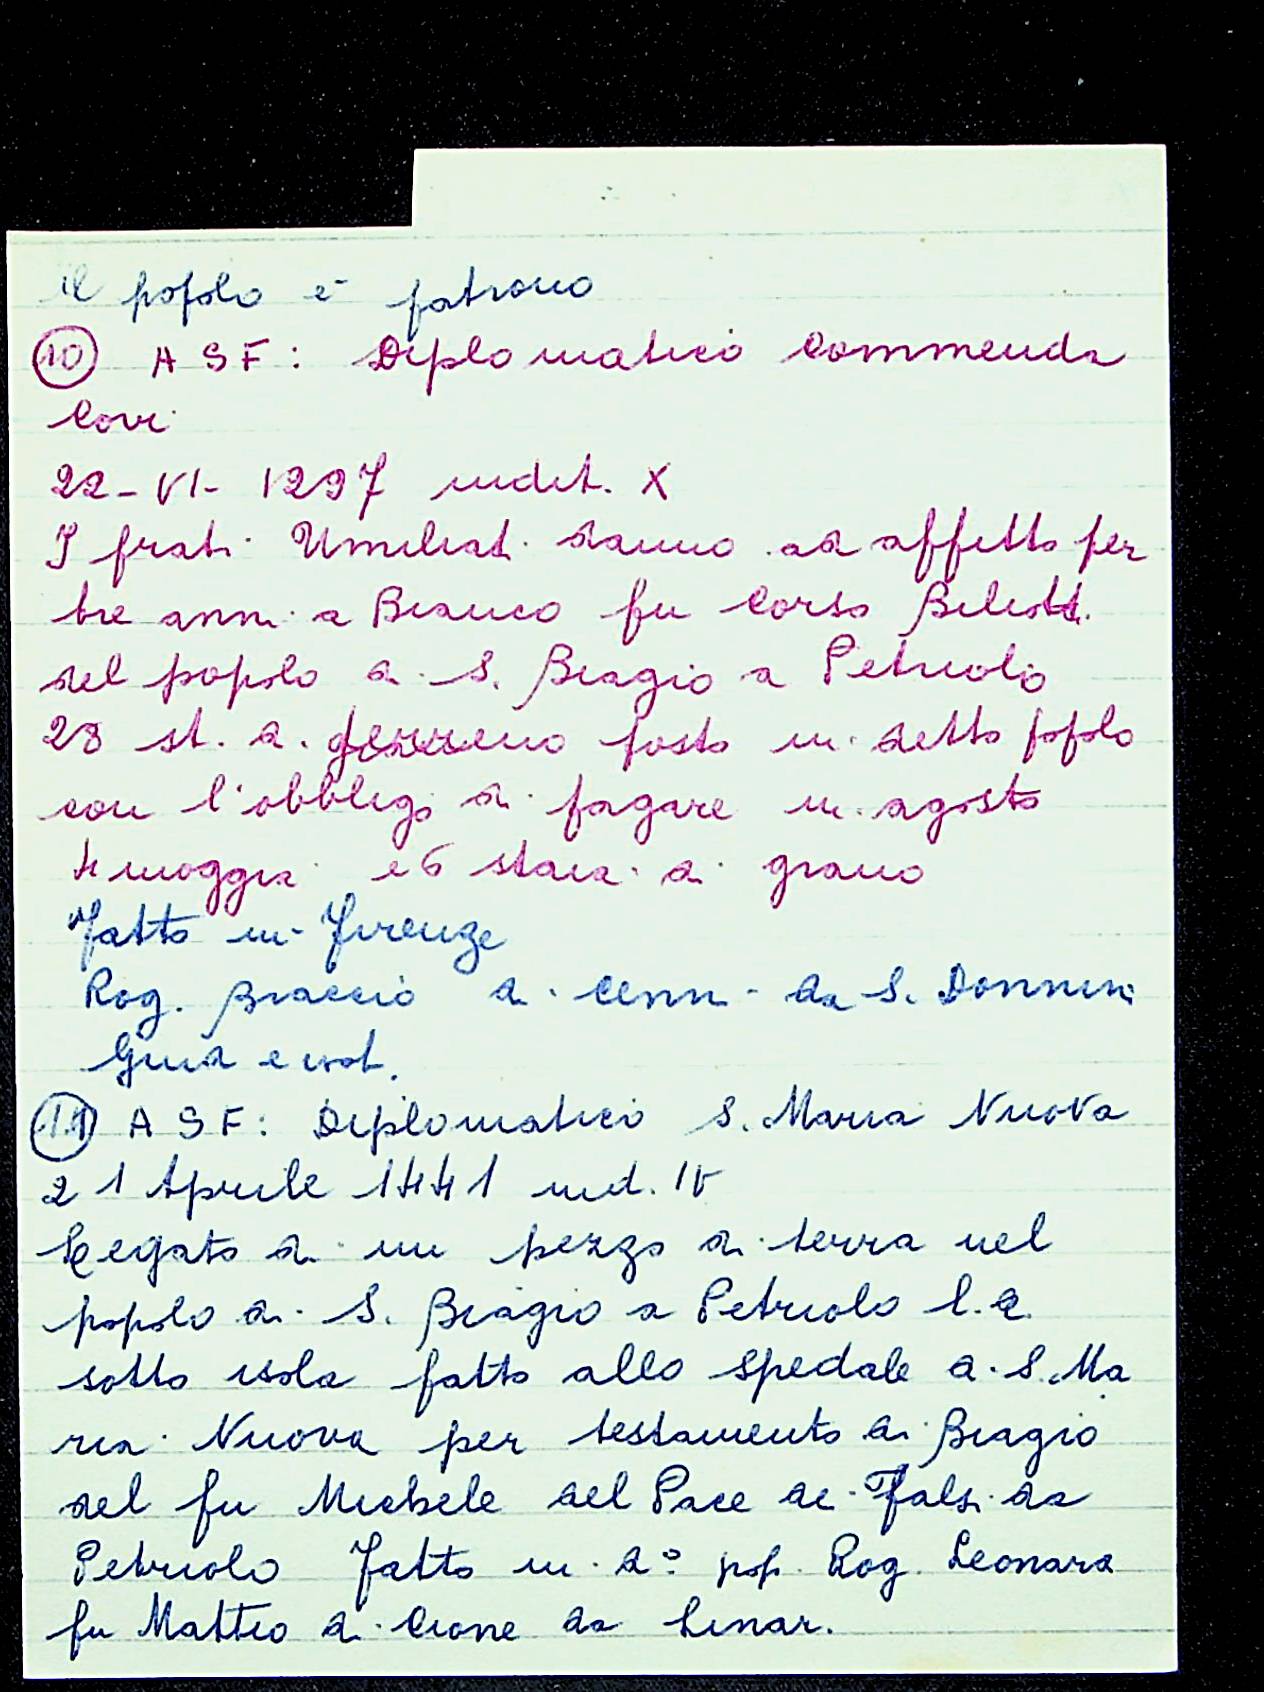 il popolo è patrono
10 ASF: Diplomatico Commenda
Covi
22-VI-1297 indit. X
I frati Umiliati danno ad affitto per
tre anni a Bianco fu Corso Beliotti
del popolo di S. Biagio a Petriolo
28 st. di terreno posto in detto popolo
con l'obbligo di pagare in agosto
4 moggia e 6 staia di grano
Fatto in Firenze
Rog. Braccio di Cenni da S. Donnino
Giud e not.
11 ASF: Diplomatico S. Maria Nuova
21 Aprile 1441 ind. IV
Legato di un pezzo di terra nel
popolo di S. Biagio a Petriolo l.d.
sotto isola fatto allo Spedale di S. Ma
ria Nuova per testamento di Biagio
del fu Michele del Pace de Falsi da
Petriolo Fatto in d° pop. Rog. Leonard
fu Matteo di Cione da Linar.